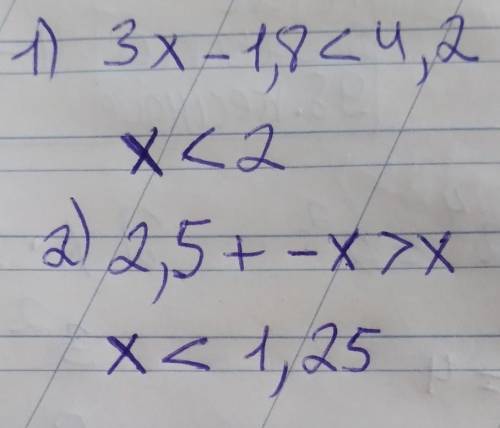 1) 3x - 1,8 < 4,2
x < 2
2) 2,5 + -x > x
x < 1,25